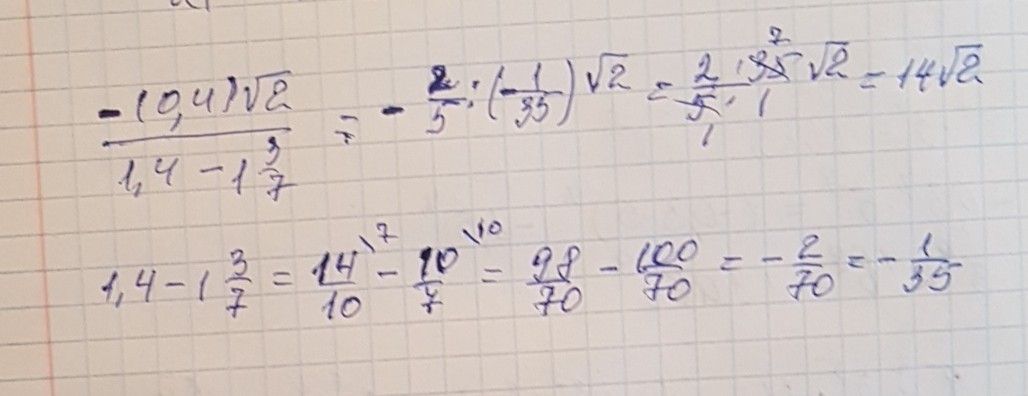 -(0,4)√2 / (1,4 - 1 3/7) = - 2/5 : (-1/35) √2 = (2 · 35 7)/(5 1 · 1) √2 = 14√2
1,4 - 1 3/7 = 14/10 \7 - 10/7 \10 = 98/70 - 100/70 = - 2/70 = - 1/35